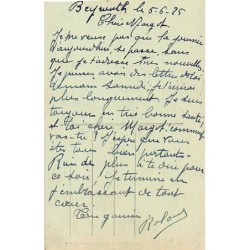 Beyrouth le 5-6-25
Chère Margot.
Je ne veux pas que la journée
d'aujourd'hui se passe sans
que je t'adresse mes nouvelles
Je pense avoir des lettres de toi
demain samedi, je t'écrirai
plus longuement. Je suis
toujours en très bonne santé
et toi chère Margot, comment
vas-tu ? J'espère que vous
êtes tous bien portants.
Rien de plus à te dire pour
ce soir. Je termine en
t'embrassant de tout
cœur.
Ton gamin